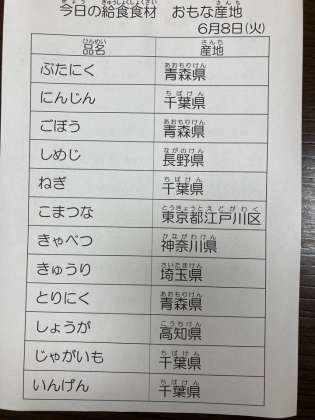 今日の給食食材　おもな産地
6月8日(火)
品名 産地
ぶたにく 青森県
にんじん 千葉県
ごぼう 青森県
しめじ 長野県
ねぎ 千葉県
こまつな 東京都江戸川区
きゃべつ 神奈川県
きゅうり 埼玉県
とりにく 青森県
しょうが 高知県
じゃがいも 千葉県
いんげん 千葉県